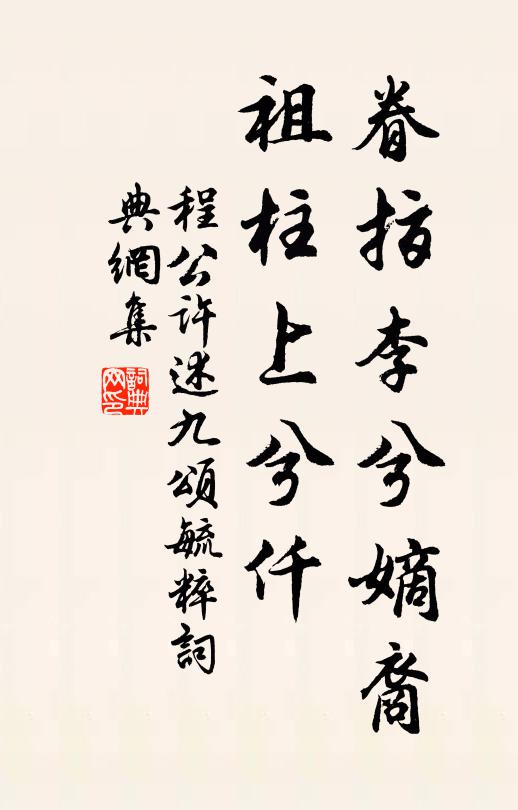 眷指李兮嫡裔
祖柱上兮仟
程公許述九頌毓粹詞
典網集
詞典網印